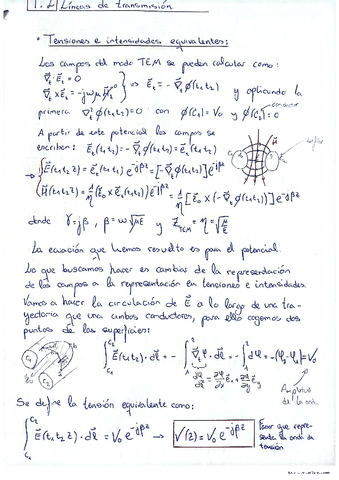 1.2 Líneas de transmisión
• Tensiones e intensidades equivalentes:
Los campos del modo TEM se pueden calcular como:
∇t·Et = 0
∇t×Et = -jωμHz⁰ } ⟹ Et = -∇tϕ(t1,t2) y aplicando la
primera ∇t²ϕ(t1,t2) = 0 con ϕ(C1) = V0 y ϕ(C2) = 0
conductor
A partir de este potencial los campos se
escriben: Et(t1,t2) = -∇tϕ(t1,t2) = Et(t1,t2)
E(t1,t2,z) = E0(t1,t2)e^-jβz = [-∇tϕ(t1,t2)]e^-jβz
H(t1,t2,z) = 1/η (z0 × Et(t1,t2))e^-jβz = 1/η [z0 × (-∇tϕ(t1,t2)]e^-jβz
donde γ = jβ, β = ω√με y ZTEM = η = √μ/ε
La ecuación que hemos resuelto es para el potencial.
Lo que buscamos hacer es cambiar de la representación
de los campos a la representación en tensiones e intensidades.
Vamos a hacer la circulación de E a lo largo de una tra-
yectoria que una ambos conductores, para ello cogemos dos
puntos de las superficies:
C1 C2
Amplitud
de la onda.
Se define la tensión equivalente como:
∫C1^C2 E(t1,t2,z)·dl = V0 e^-jβz → V(z) = V0 e^-jβz
Fasor que repre-
senta la onda de
tensión